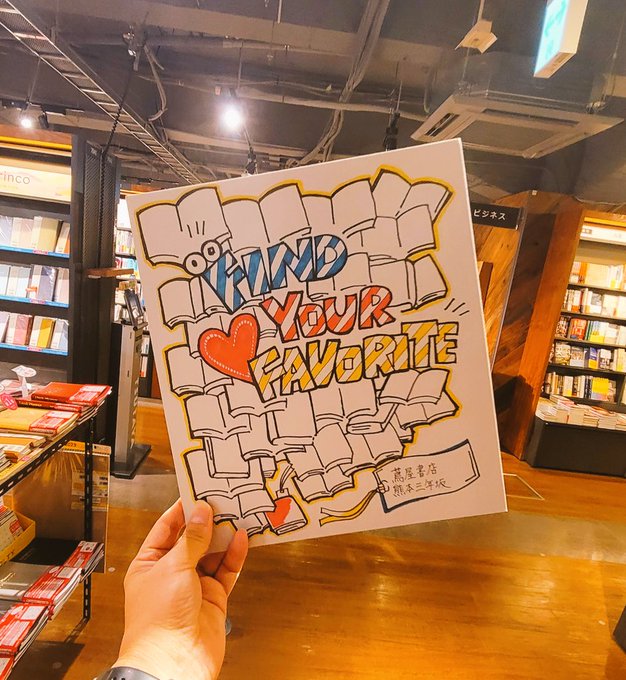 rinco
ビジネス
FIND
YOUR
FAVORITE
蔦屋書店
熊本三年坂